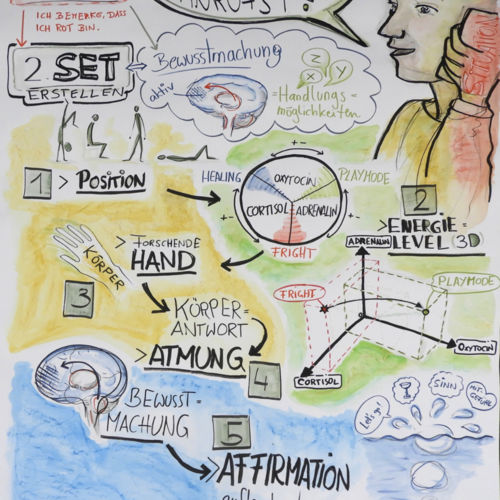 ICH BEMERKE, DASS
ICH ROT BIN.
2. SET
ERSTELLEN
Bewusstmachung
aktiv
Z
X
Y
= Handlungs=
möglichkeiten
SITUATION
1 > POSITION
HEALING
OXYTOCIN
PLAYMODE
CORTISOL
ADRENALIN
FRIGHT
+-
+-
+-
2
> ENERGIE=
LEVEL (3D)
ADRENALIN
FRIGHT
PLAYMODE
OXYTOCIN
CORTISOL
KÖRPER
> FORSCHENDE
HAND
3
KÖRPER=
ANTWORT
> ATMUNG
4
BEWUSST=
MACHUNG
5
> AFFIRMATION
Let's go!
SINN
MIT-
GEFÜHL